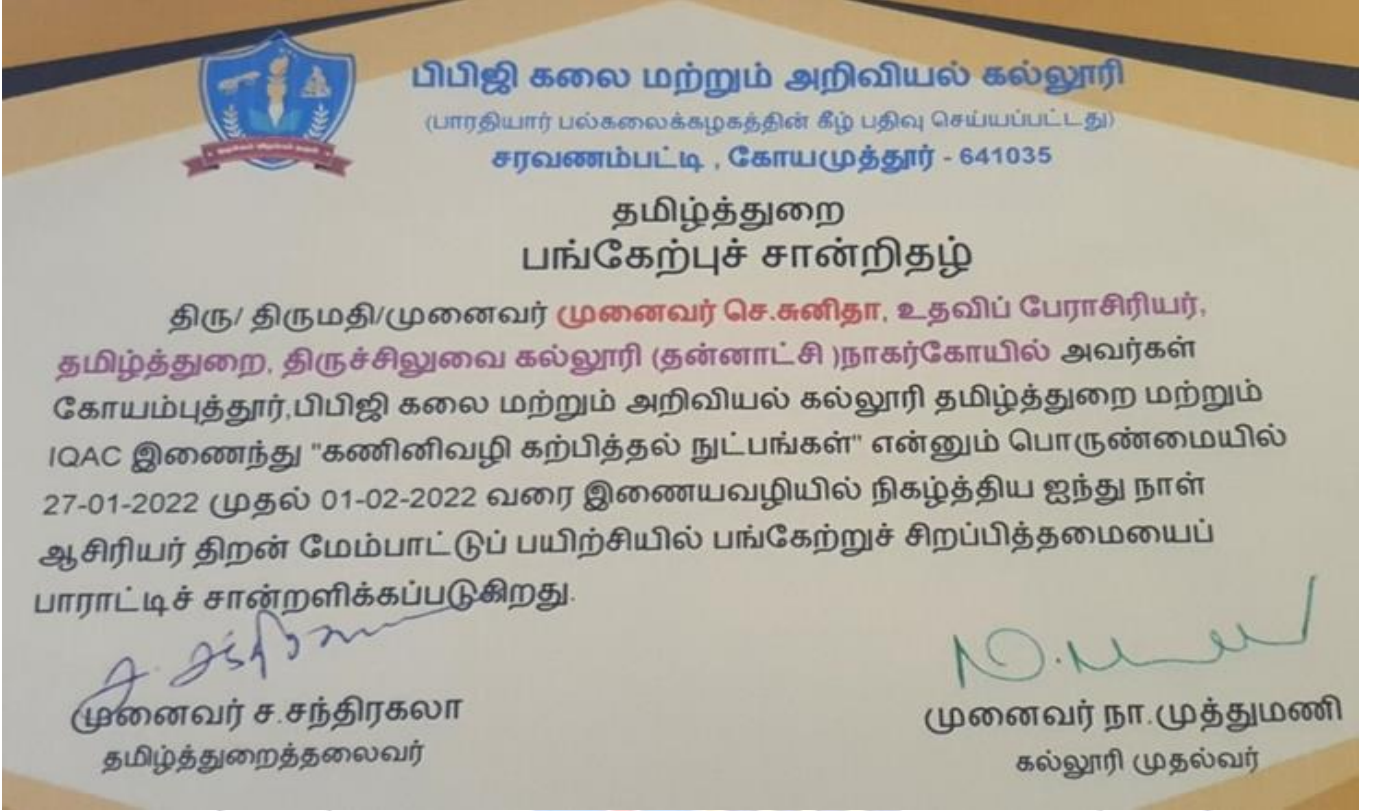 பிபிஜி கலை மற்றும் அறிவியல் கல்லூரி
(பாரதியார் பல்கலைக்கழகத்தின் கீழ் பதிவு செய்யப்பட்டது)
சரவணம்பட்டி , கோயமுத்தூர் - 641035
தமிழ்த்துறை
பங்கேற்புச் சான்றிதழ்
திரு/ திருமதி/முனைவர் முனைவர் செ.சுனிதா, உதவிப் பேராசிரியர்,
தமிழ்த்துறை, திருச்சிலுவை கல்லூரி (தன்னாட்சி )நாகர்கோயில் அவர்கள்
கோயம்புத்தூர்,பிபிஜி கலை மற்றும் அறிவியல் கல்லூரி தமிழ்த்துறை மற்றும்
IQAC இணைந்து "கணினிவழி கற்பித்தல் நுட்பங்கள்" என்னும் பொருண்மையில்
27-01-2022 முதல் 01-02-2022 வரை இணையவழியில் நிகழ்த்திய ஐந்து நாள்
ஆசிரியர் திறன் மேம்பாட்டுப் பயிற்சியில் பங்கேற்றுச் சிறப்பித்தமையைப்
பாராட்டிச் சான்றளிக்கப்படுகிறது.
முனைவர் ச.சந்திரகலா
தமிழ்த்துறைத்தலைவர்
முனைவர் நா.முத்துமணி
கல்லூரி முதல்வர்